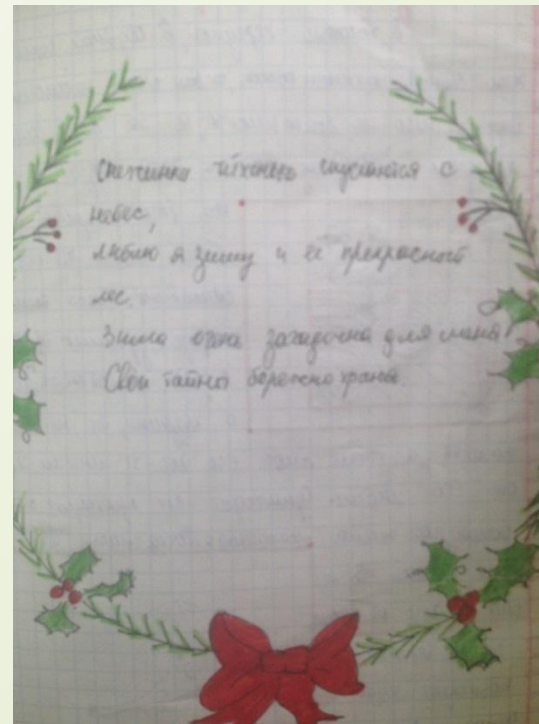 Снежинки тихонько спускаются с
небес,
люблю я зиму и её прекрасный
лес.
Зима очень загадочна для меня
Свои тайны бережно храня.